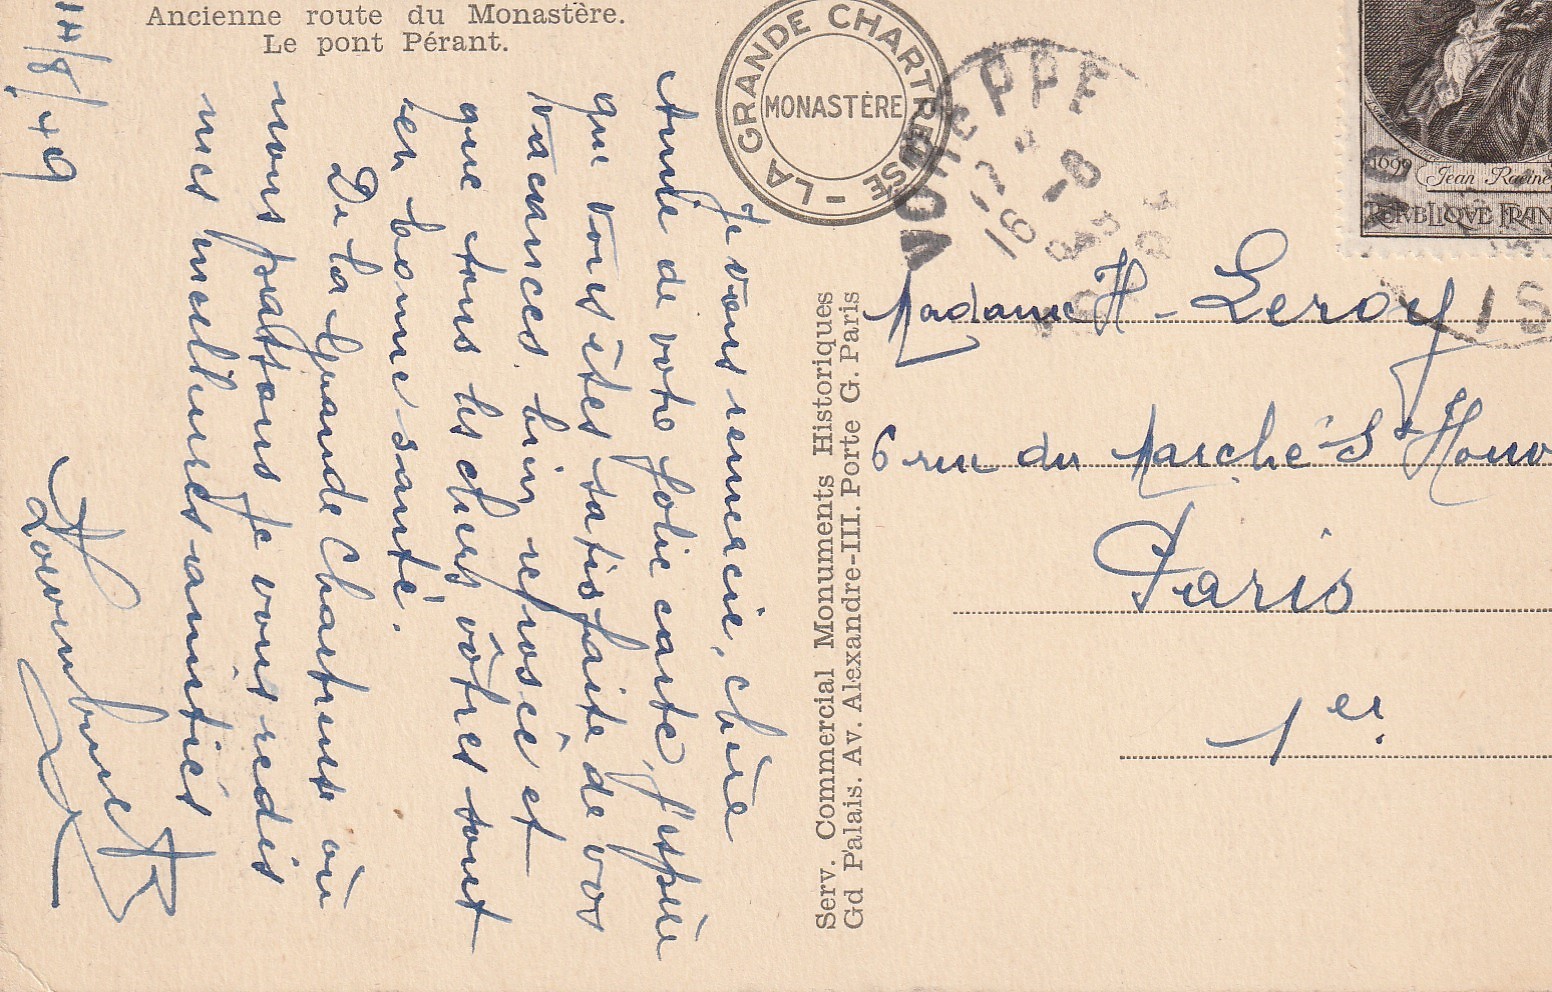 Ancienne route du Monastère.
Le pont Pérant.
LA GRANDE CHARTREUSE
MONASTÈRE
VOREPPE
16 -8
1699
Jean Racine
REPVBLIQVE FRAN
Serv. Commercial Monuments Historiques
Gd Palais. Av. Alexandre-III. Porte G. Paris
Je vous remercie, chère
Amie de votre jolie carte, j'espère
que vous êtes satisfaite de vos
vacances, bien reposée et
que tous les chers vôtres sont
en bonne santé.
De la Grande Chartreuse où
nous passons je vous redis
mes meilleures amitiés
/8/49
Madame H. Leroy
6 rue du Marché St Hono
Paris
1er